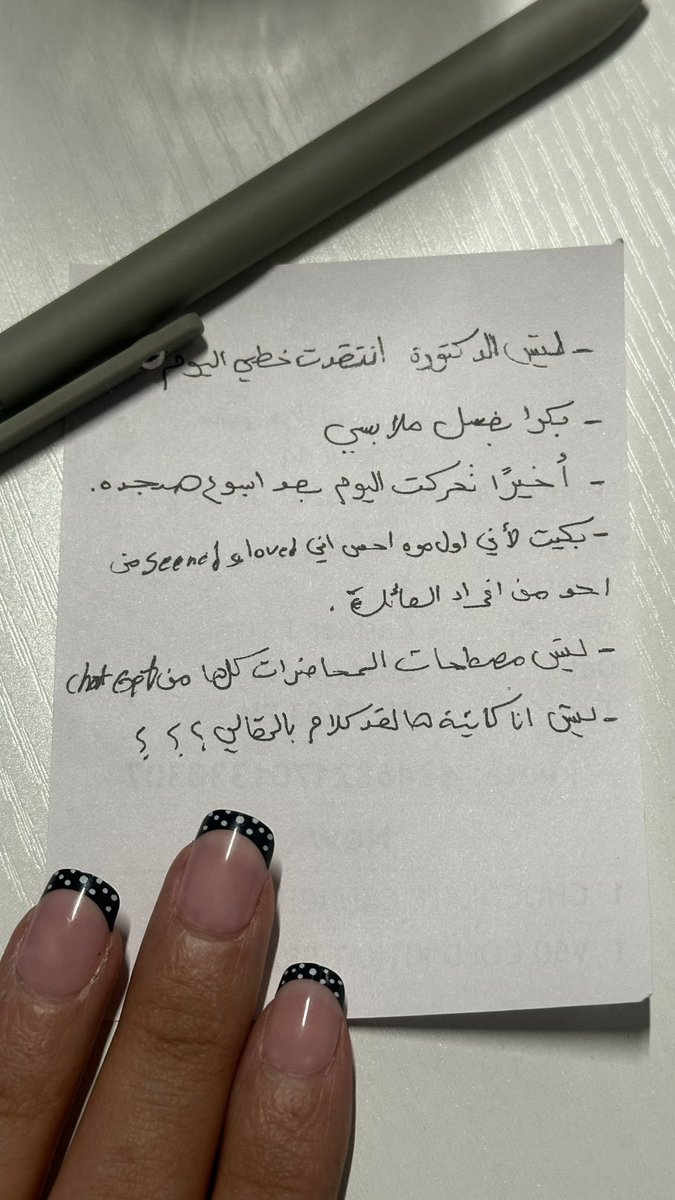 - ليش الدكتورة انتقدت خطي اليوم
- بكرا بغسل ملابسي
- أخيرًا تحركت اليوم بعد اسبوع
- بكيت لأني اول مره احس اني loved و seened من
احد من افراد العائلة .
- ليش مصطلحات المحاضرات كلها من chat Gpt
- ليش انا كاتبة هالقد كلام بالمقالي ؟ ؟ ؟